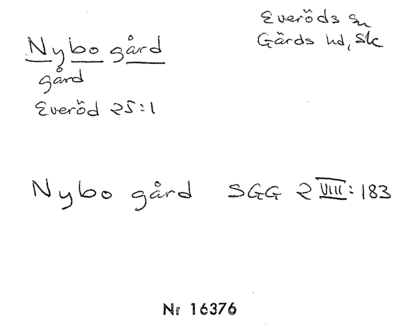 Nybo gård
gård
Everöd 25:1
Everöds sn
Gärds hd, Sk
Nybo gård SGG 2 VIII: 183
Nr 16376